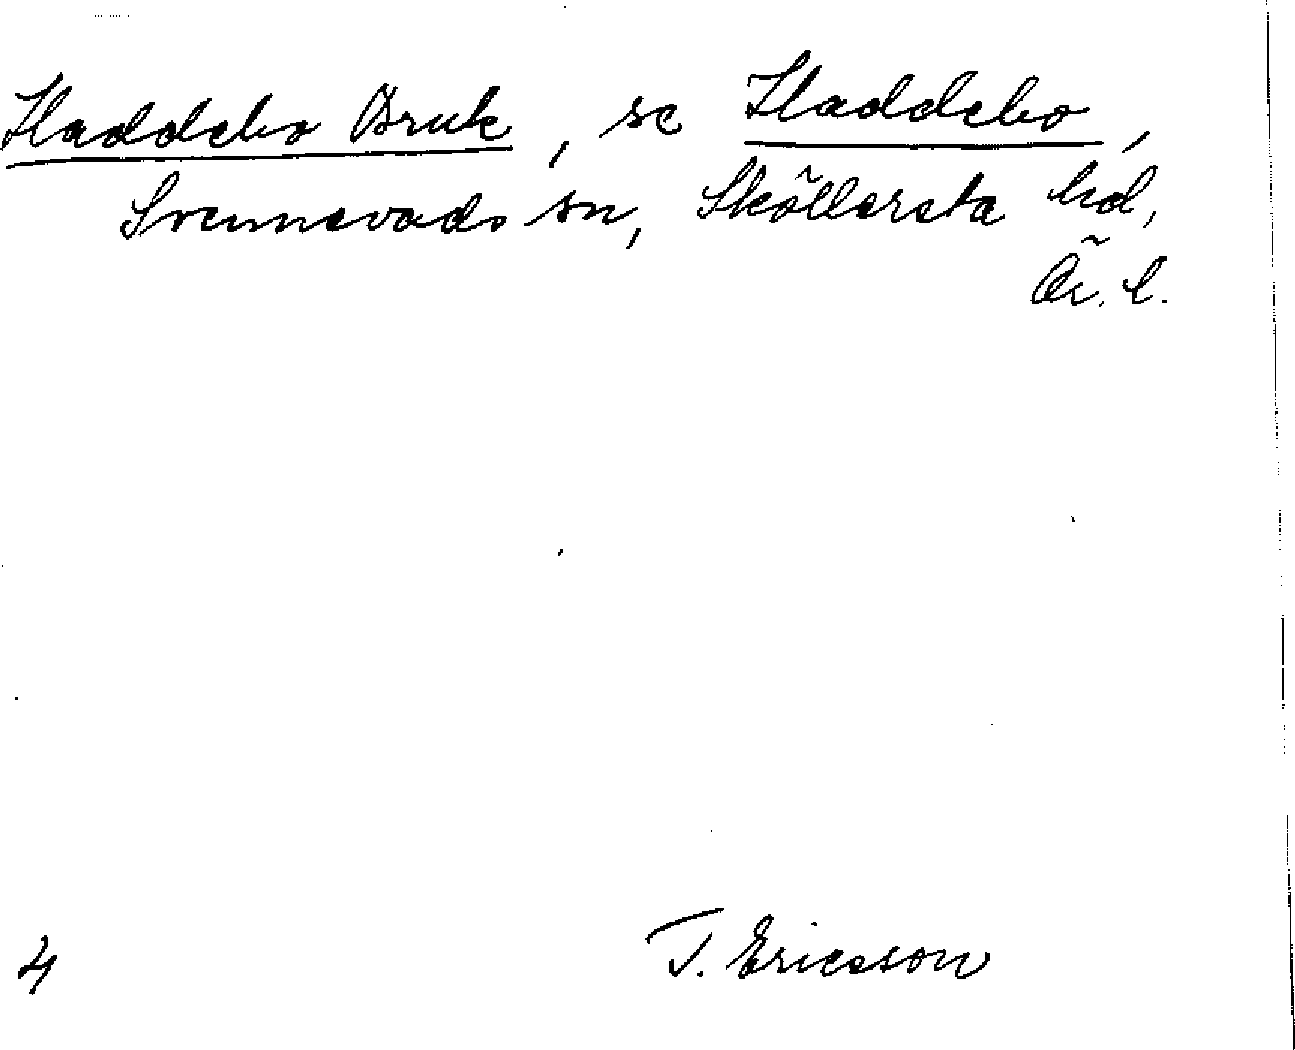 Haddebo Bruk, se Haddebo,
Svennevads sn, Sköllersta hd,
Ör. l.
4 T. Ericsson